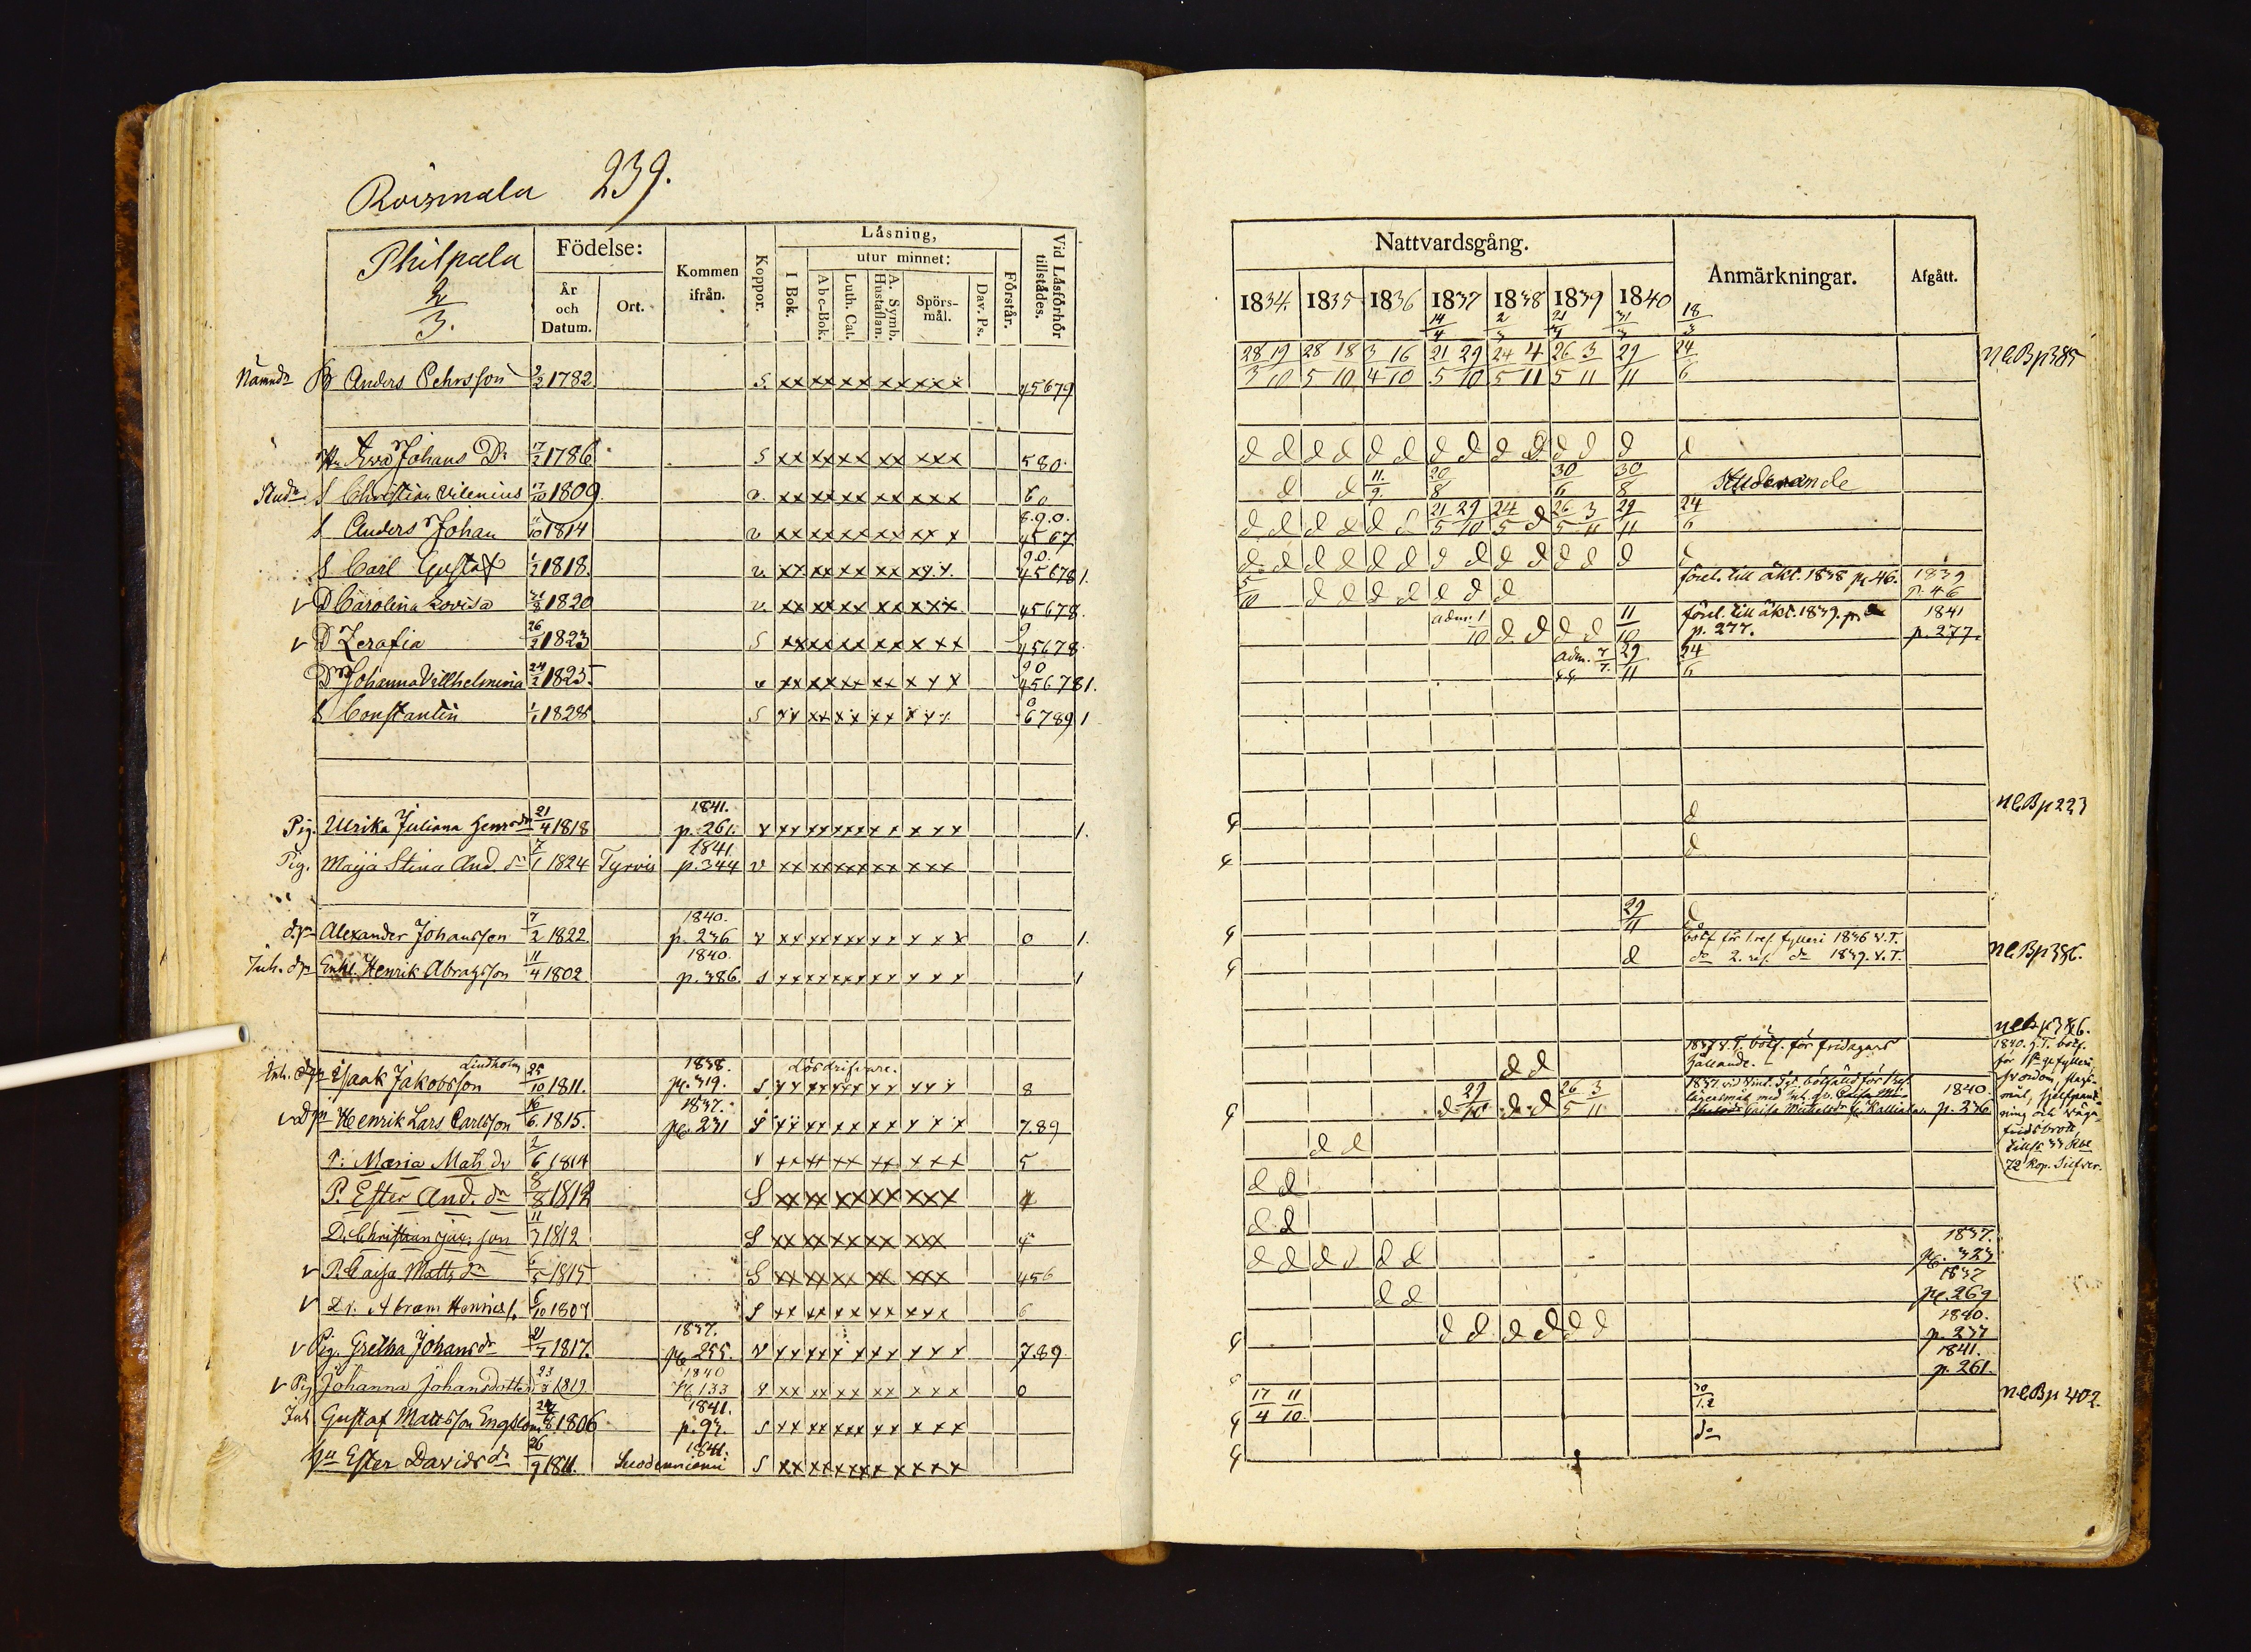 Roismala 239.
Philpala 2/3.
Födelse:
År och Datum.
Ort.
Kommen ifrån.
Koppor.
Läsning,
I Bok.
utur minnet:
Abc-Bok.
Luth. Cat.
A. Symb. Hustaflan.
Spörs-mål.
Dav. Ps.
Förstår.
Vid Läsförhör tillstädes.
Nämnd. B Anders Pehrsson 2/2 1782 S. xx xx xx xx xxx 45679
Hu Eva Johans Dr 17/2 1786 S xx xx xx xx xxx 580.
Stud. S Christian Vilenius 17/10 1809. v. xx xx xx xx xxx 60
S Anders Johan 11/10 1814 v xx xx xx xx xx x 8.9.0. 4567
S Carl Gustaf 1/2 1818. v. xx xx xx xx xxx 90. 45678 1.
v D Carolina Lovisa 31/8 1820 v. xx xx xx xx xxx 45678.
v D Zerafia 26/2 1823 S xx xx xx xx x xx 9 45678
D Johanna Villhelmina 24/2 1825. v xx xx xx xx x x x 90 45678 1.
S Constantin 1/1 1828 S xx xx xx xx x xx 0 6789 1
Pig. Ulrika Juliana Henr.dr 21/4 1818 1841. p. 261. v xx xx xx xx x xx 1.
Pig. Maija Stina And. dr 7/1 1824 Tyrvis 1841 p. 344 v xx xx xx xx xxx
d.pn Alexander Johansson 7/2 1822. 1840. p. 236 v xx xx xx xx x xx 0 1.
Inh. dpn Enkl. Henrik Abramsson 11/4 1802 1840. p. 386. S xx xx xx xx x x x 1
Lindholm
Inh. dpn Isaak Jakobsson 25/10 1811. 1838. p. 319. S Lösdrifvare. xx xx xx xx xx x 8
v Dpn Henrik Lars Carlsson 16/6 1815. 1837. p. 231 S xx xx xx xx x xx 7.89
P: Maria Mats dr 2/6 1814 v xx xx xx xx x xx 5
P. Ester And. dr 8/8 1812 S xx xx xx xx xxx 4
D. Christian son 11/7 1812 S xx xx xx xx xxx 4
v P. Caisa Matts dr 6/5 1815 S xx xx xx xx xxx 456
v Dr. Abram Henrics s. 6/10 1807 S xx xx xx xx xxx 6
v Pig. Gretha Johansdr 21/7 1817. 1837. p. 255. v xx xx xx xx x xx 7.89
v Pig Johanna Johansdotter 23/3 1819 1840 p. 133 S xx xx xx xx x xx 0
Inh Gustaf Mattsson Engblom 24/8 1806 1841. p. 93. S xx xx xxx xx x x x
Hu Ester Davids dr 26/9 1811. Suodenniemi 1841. S xx xx xx xx x xxx
Nattvardsgång.
Anmärkningar.
Afgått.
1834. 1835 1836 1837 1838 1839 1840
14/4 2/3 21/4 31/3 18/3
28/3 19/10 28/5 18/10 3/4 16/10 21/5 29/10 24/5 4/11 26/5 3/11 29/11 24/6 nCBp385
d d d d d d d d d d d d d d
d d 11./9. 20/8 30/6 30/8 Studerande
d d d d d d 21/5 29/10 24/5 d 26/5 3/11 29/11 24/6
d d d d d d d d d d d d d d
5/10 d d d d d d d förel. till äkt. 1838 p. 46. 1839 p. 46
adm. 1/10 d d d d 11/10 förel. till äkt. 1839. p. 277. 1841 p. 277.
adm. 7/7. 29/11 24/6
d nCBp223
d
29/11 d
d bötf. för 1. res. fylleri 1836 v.T.
do 2. res. do 1839. v.T. nCBp386.
nCBp386.
d d 1837 v.T. bötf. för fridagars hållande.
d 29/10 d d 26/5 3/11 1837. vid Vint. Tg. bötfälld för 1 res. lägersmål med Caisa Michelsdr fr. Kalliala. 1840 p. 236
1840. v.T. bötf. för 1sta gs fylleri, svordom, slags-mål, och fridsbrott, tills. 33 Rbl 72 kop. Silfver.
d d
d d
d d
d d d d d d 1837. p. 323
d d 1837 p. 269
d d d d d d 1840. p. 237
1841. p. 261.
17/4 11/10. 30/12 nCBp 402.
do